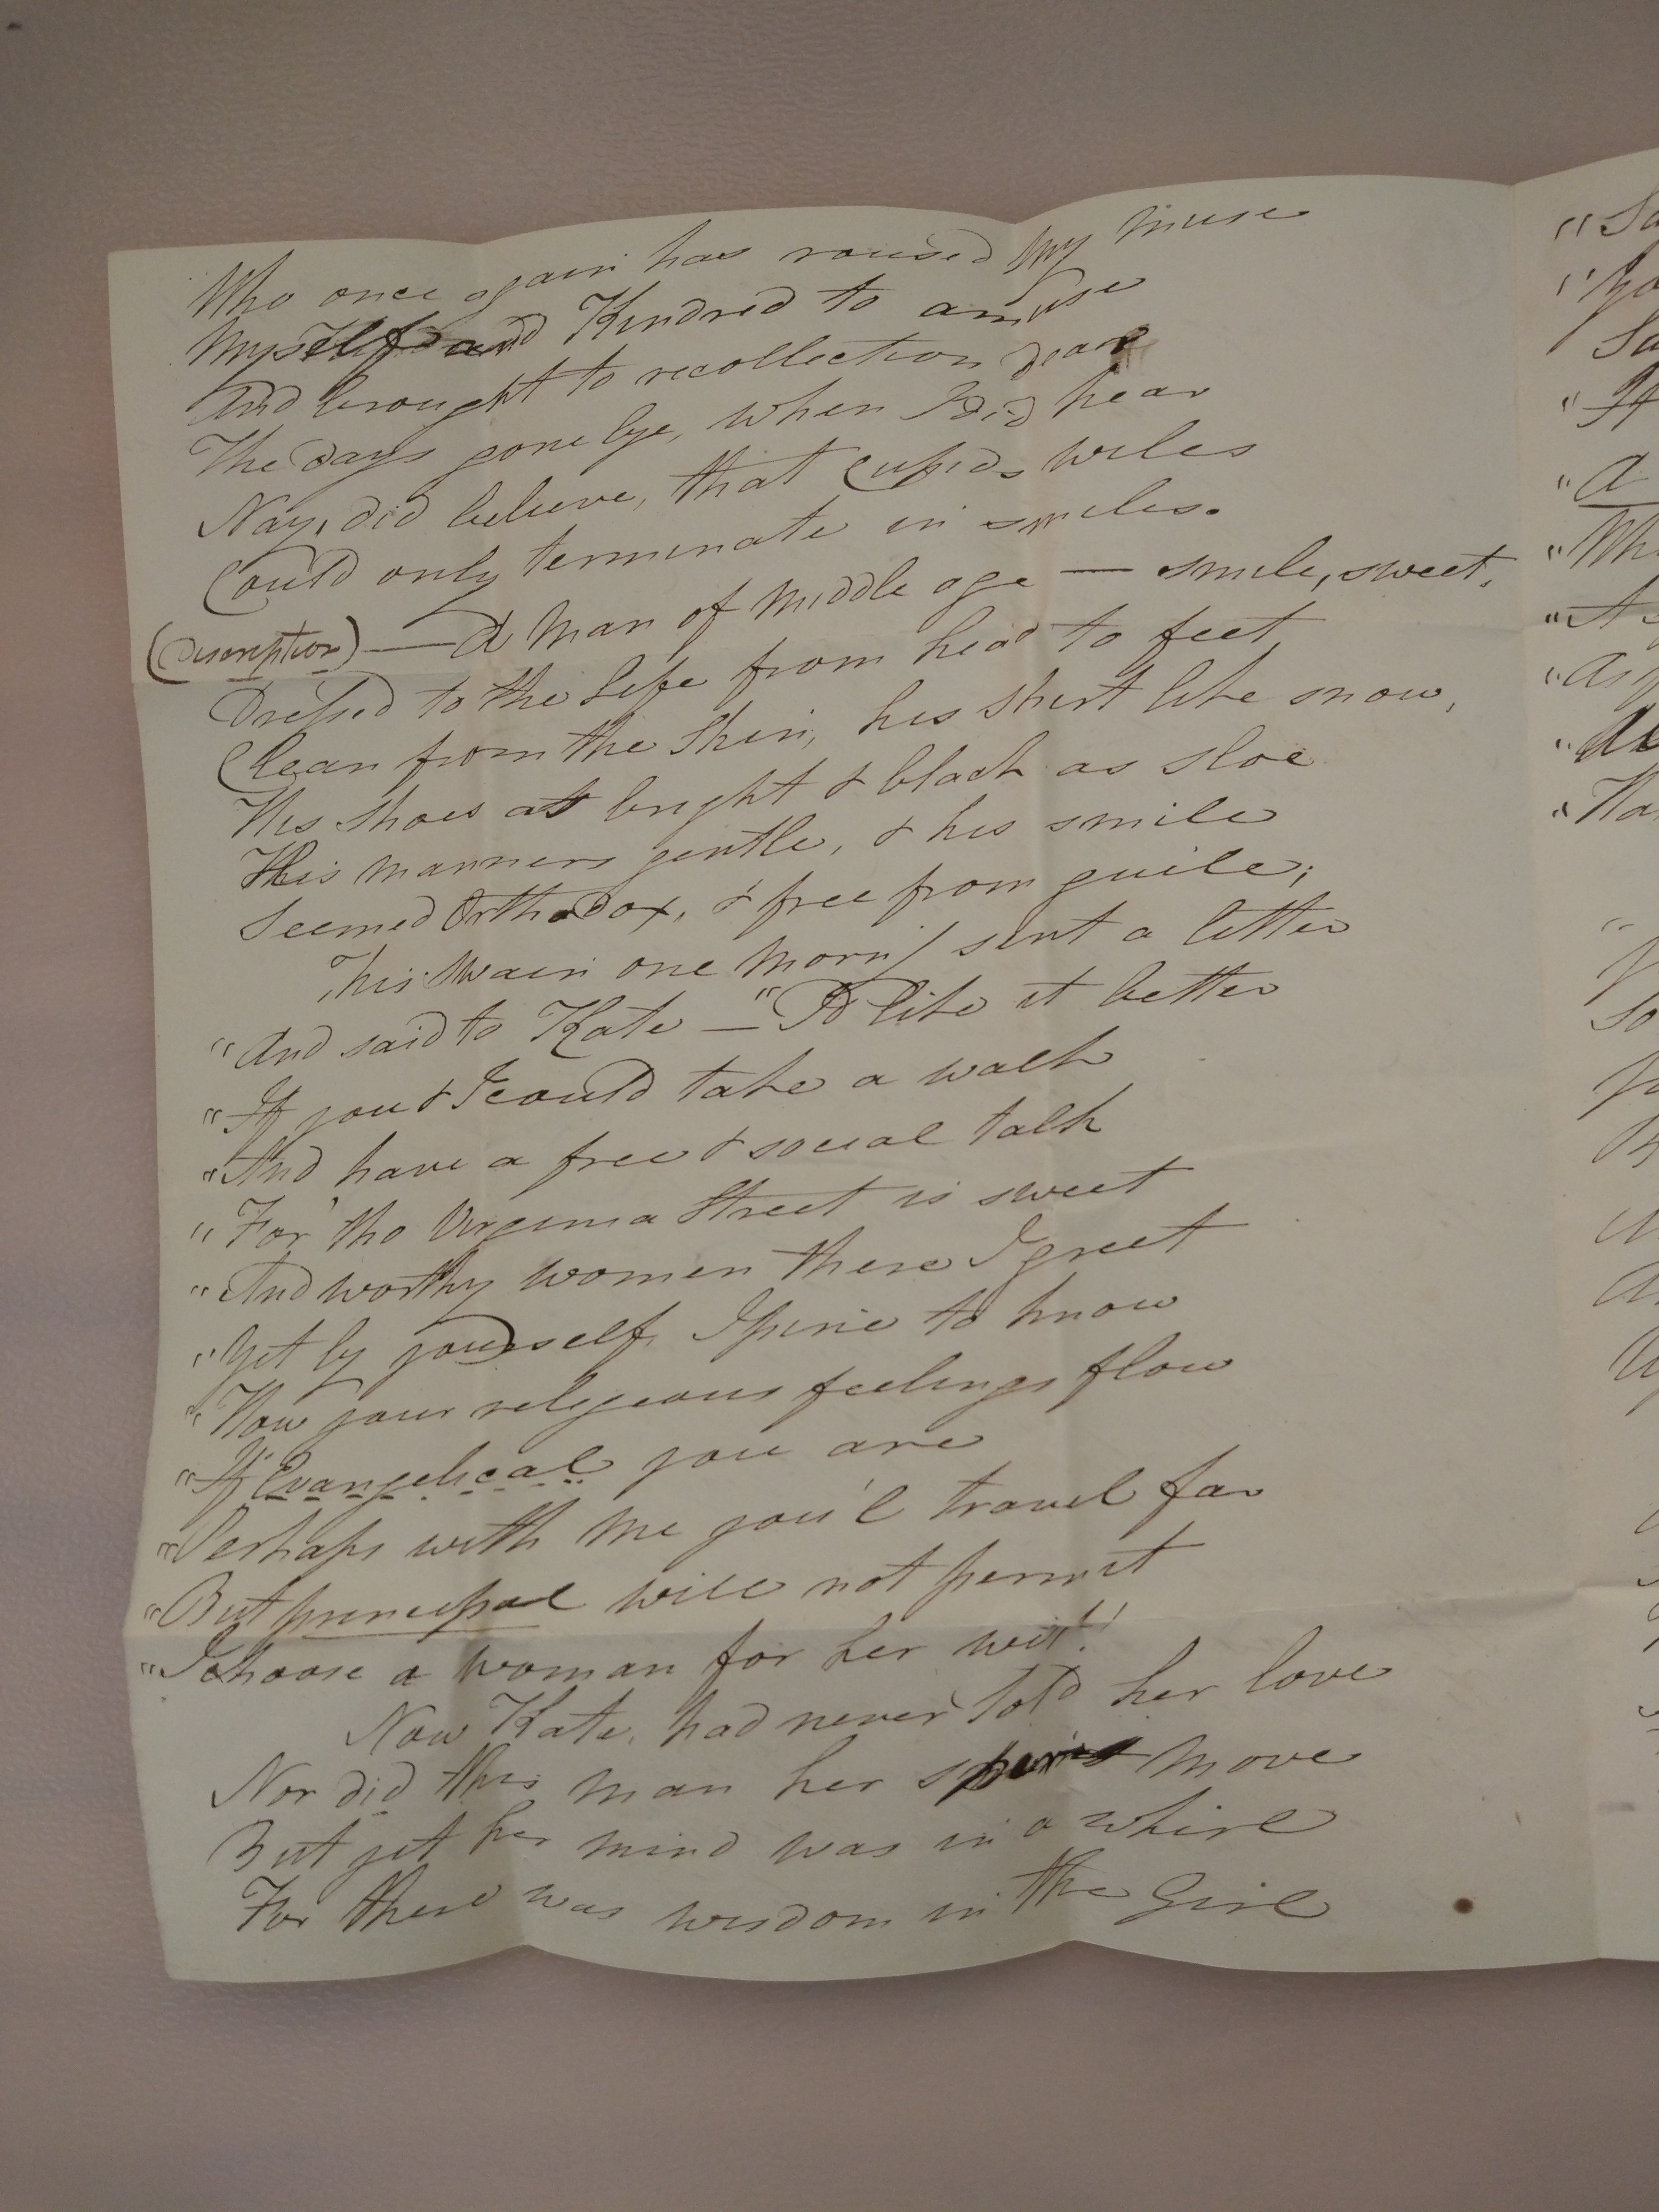 Who once again has rousèd my muse
Myself and Kindred to amuse
And brought to recollection dear
The days gone bye, when I did hear
Nay, did believe, that Cupids wiles
Could only terminate in smiles.
(Discription) — A Man of middle age — smile, sweet,
Dressed to the life from head to feet,
Clean from the skin, his shirt like snow,
His shoes as bright & black as sloe
His manners gentle, & his smile
Seemed Orthodox, & free from guile;
This swain one morn' sent a letter
"And said to Kate — "I'd like it better
"If you & I could take a walk
"And have a free & social talk
"For tho Virginia Street is sweet
"And worthy women there I greet
"Yet by yourself, I pine to know
"How your religeous feelings flow
"If Evangelical you are
"Perhaps with me you'l travel far
"But principal will not permit
"I choose a woman for her wit!"
Now Kate, had never told her love
Nor did this man her spirit move
But yet her mind was in a whirl
For there was wisdom in the Girl
"
"
"
"
"A
"
"
"
"
"
So